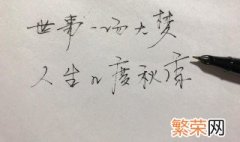 世事一场大梦
人生几度秋凉
繁荣网